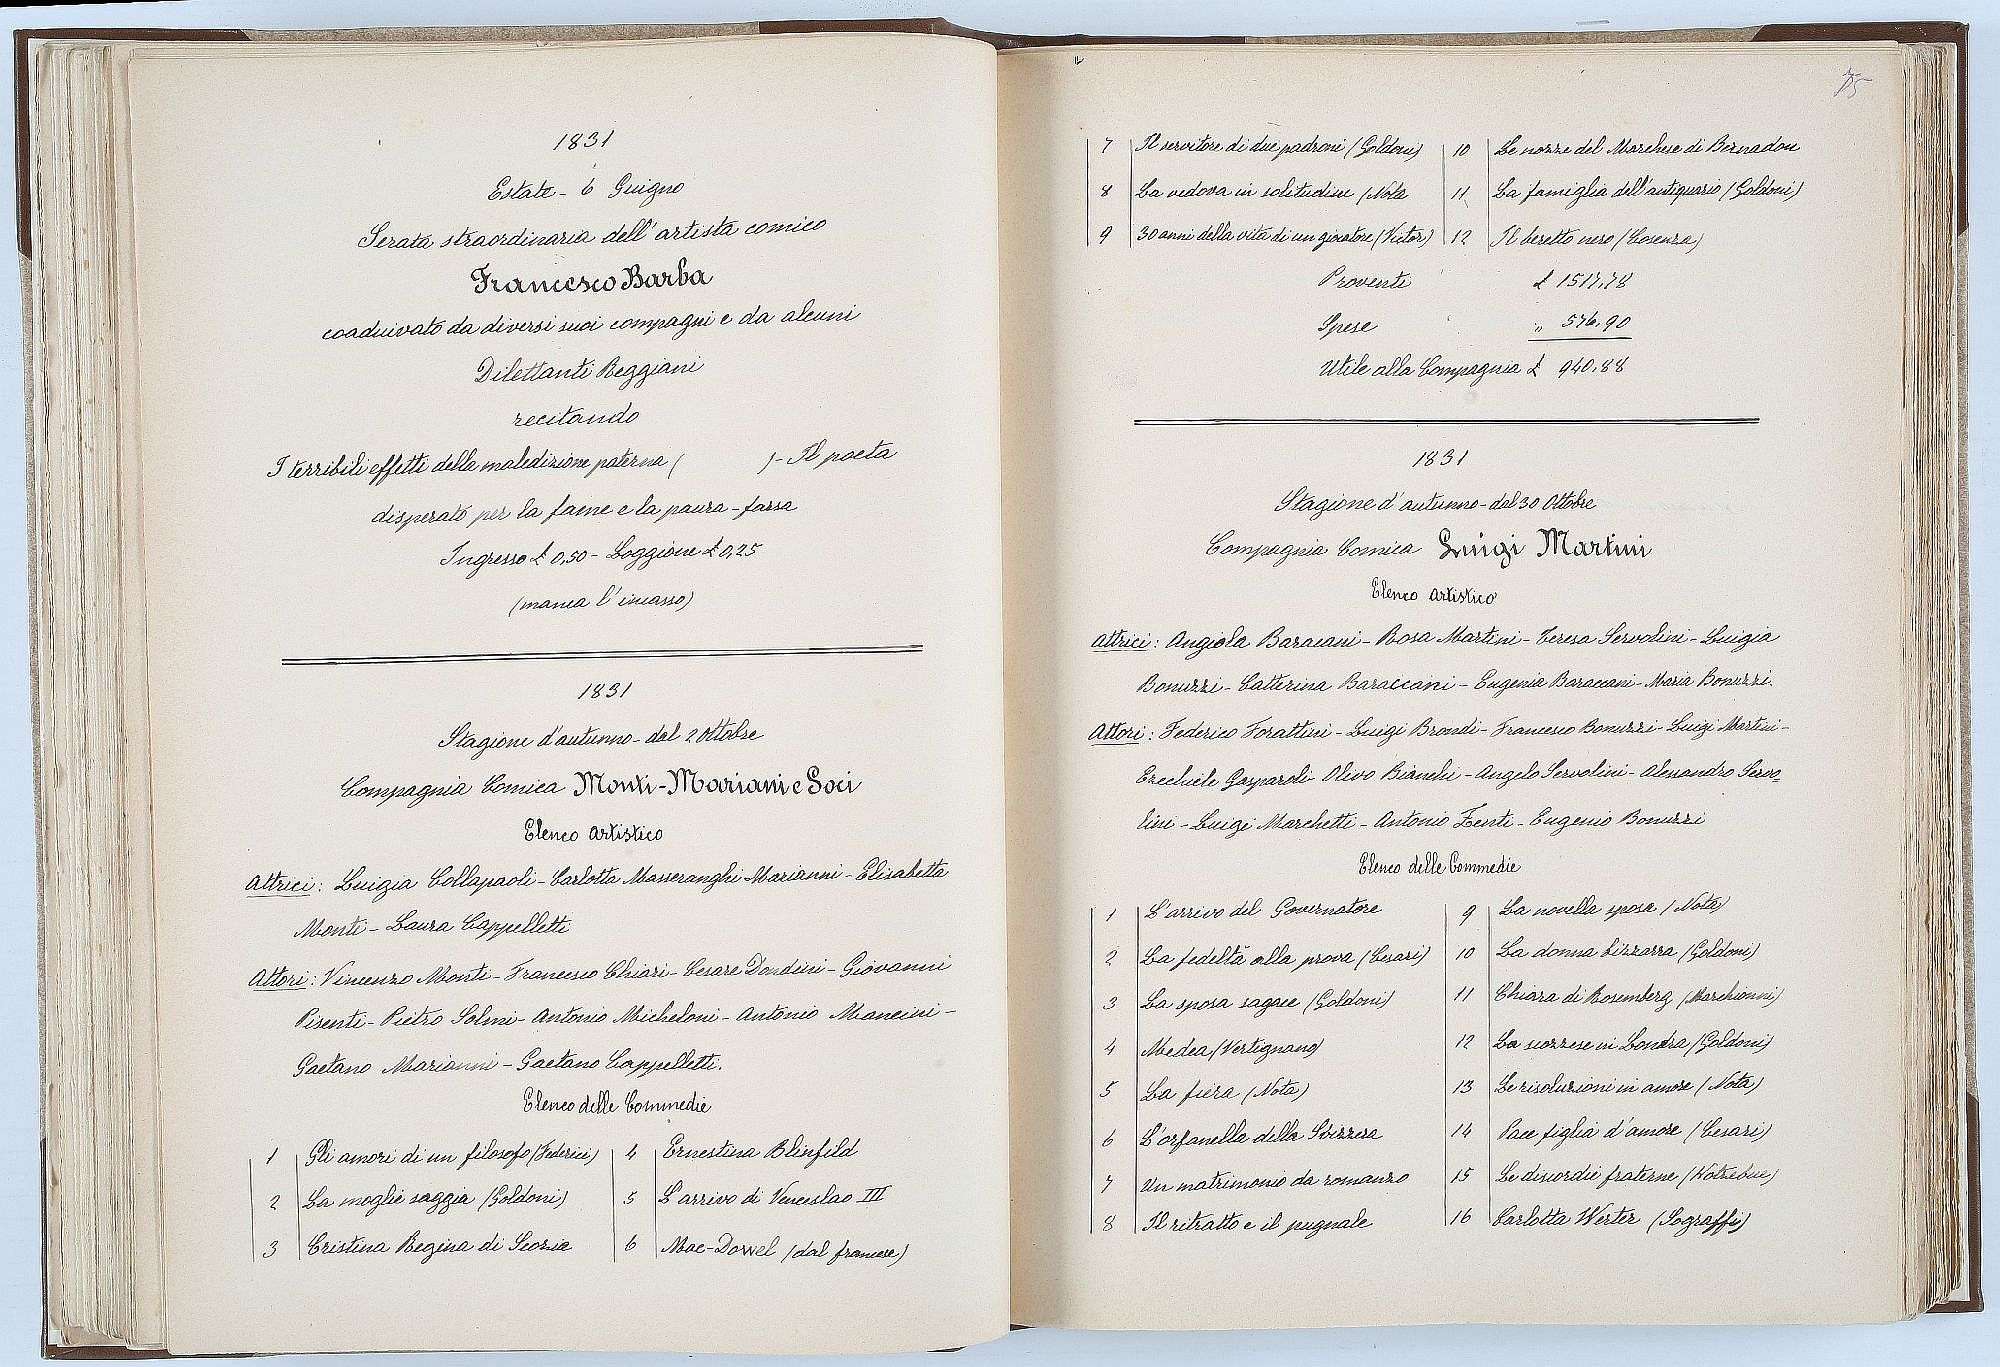 1831
Estate - 6 Giugno
Serata straordinaria dell'artista comico
Francesco Barba
coadiuvato da diversi suoi compagni e da alcuni
Dilettanti Reggiani
recitando
I terribili effetti della maledizione paterna ( ) - Il poeta
disperato per la fame e la paura - farsa
Ingresso £ 0,50 - Loggione £ 0,25
(manca l'incasso)
1831
Stagione d'autunno - dal 2 Ottobre
Compagnia Comica Monti - Mariani e Soci
Elenco artistico
Attrici: Luigia Collapaoli - Carlotta Masseranghi Marianni - Elisabetta
Monti - Laura Cappelletti
Attori: Vincenzo Monti - Francesco Chiari - Cesare Dondini - Giovanni
Pisenti - Pietro Solmi - Antonio Micheloni - Antonio Mancini -
Gaetano Marianni - Gaetano Cappelletti.
Elenco delle Commedie
1 Gli amori di un filosofo (Federici) 4 Ernestina Blinfild
2 La moglie saggia (Goldoni) 5 L'arrivo di Venceslao III
3 Cristina Regina di Scozia 6 Mac-Dowel (dal francese)
75
7 Il servitore di due padroni (Goldoni) 10 Le nozze del Marchese di Bernadou
8 La vedova in solitudine (Nota 11 La famiglia dell'antiquario (Goldoni)
9 30 anni della vita di un giocatore (Victor) 12 Il beretto nero (Cosenza)
Proventi £ 1517,78
Spese " 576,90
Utile alla Compagnia £ 940,88
1831
Stagione d'autunno - dal 30 Ottobre
Compagnia Comica Luigi Martini
Elenco artistico
Attrici: Angiola Baracani - Rosa Martini - Teresa Servolini - Luigia
Bonuzzi - Catterina Baraccani - Eugenia Baraccani - Maria Bonuzzi.
Attori: Federico Forattini - Luigi Brondi - Francesco Bonuzzi - Luigi Martini -
Ezechiele Gasparoli - Olivo Bianchi - Angelo Servolini - Alessandro Servo-
lini - Luigi Marchetti - Antonio Zenti - Eugenio Bonuzzi
Elenco delle Commedie
1 L'arrivo del Governatore 9 La novella sposa (Nota)
2 La fedeltà alla prova (Cesari) 10 La donna bizzarra (Goldoni)
3 La sposa sagace (Goldoni) 11 Chiara di Rosemberg (Marchionni)
4 Medea (Vertignano) 12 La scozzese in Londra (Goldoni)
5 La fiera (Nota) 13 Le risoluzioni in amore (Nota)
6 L'orfanella della Svizzera 14 Pace figlia d'amore (Cesari)
7 Un matrimonio da romanzo 15 Le discordie fraterne (Kotzebue)
8 Il ritratto e il pugnale 16 Carlotta Werter (Sograffi)